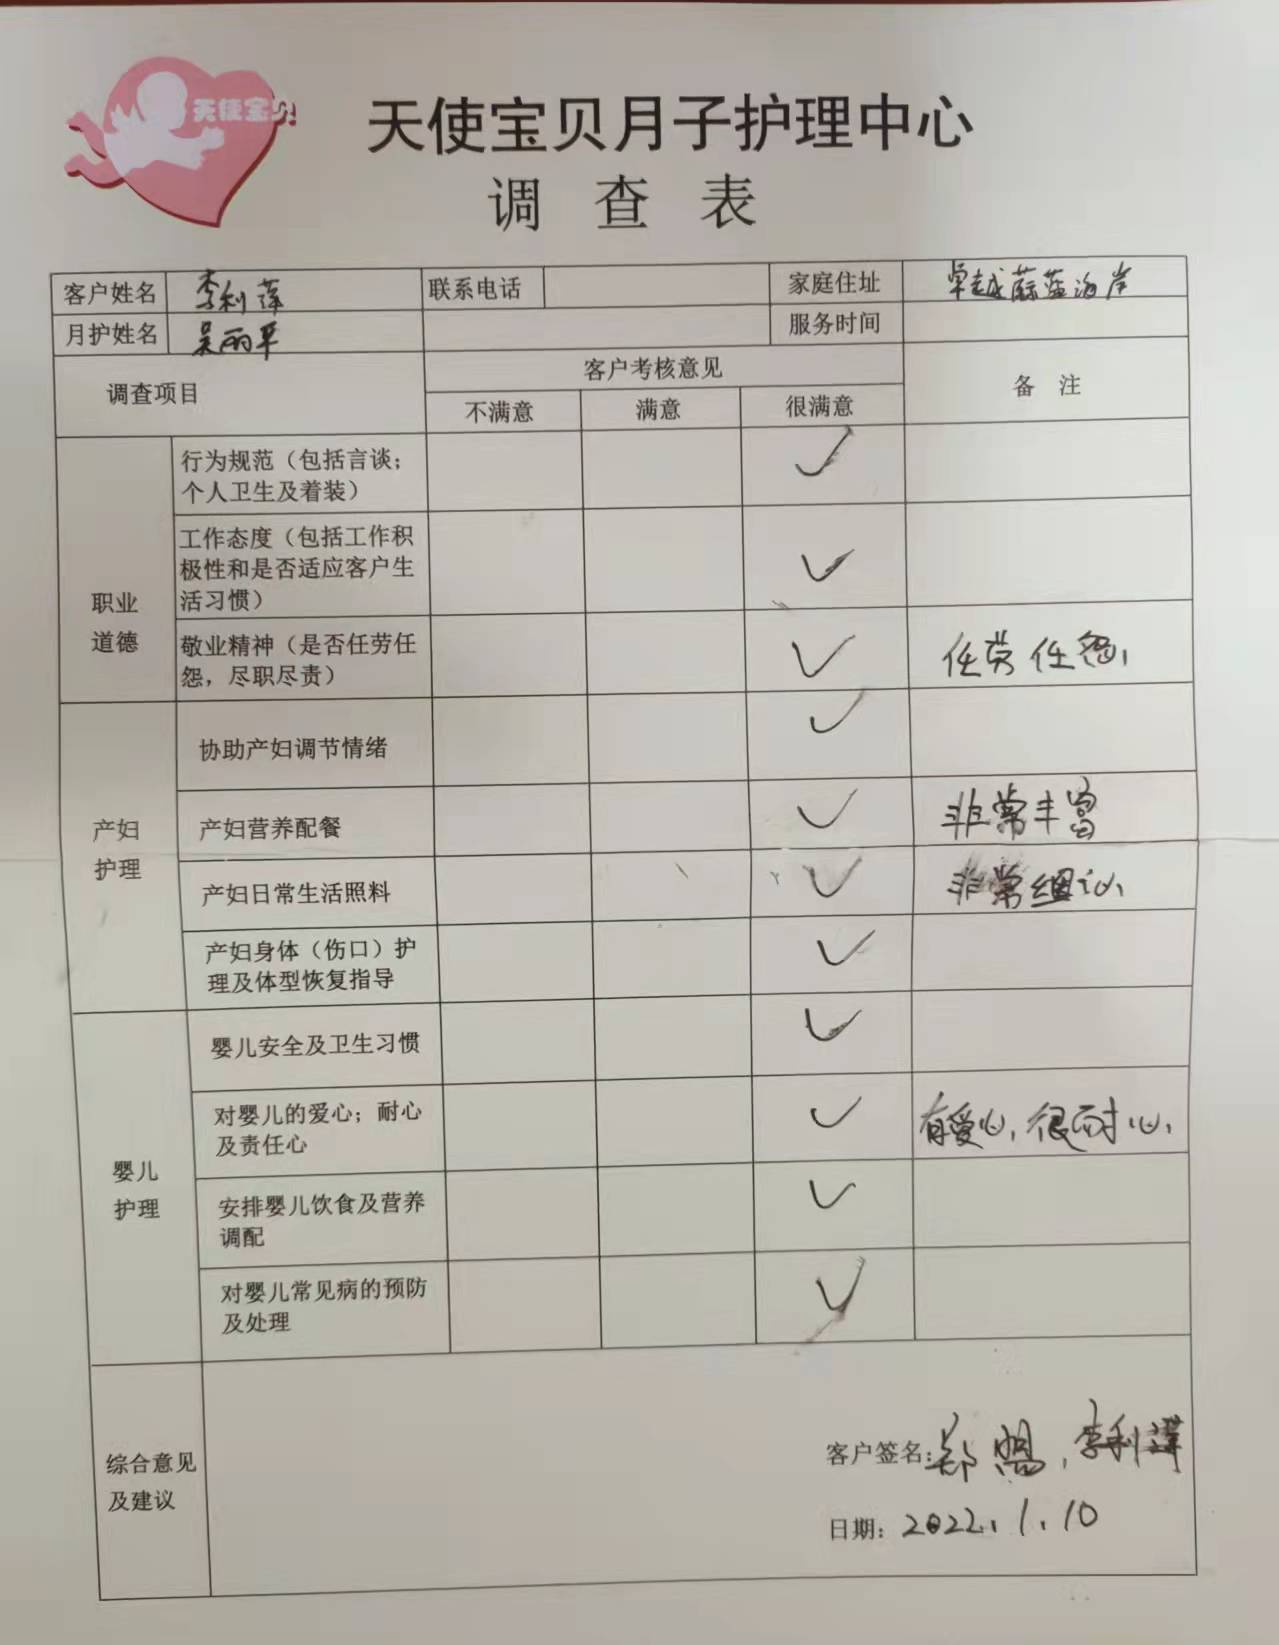 天使宝贝
天使宝贝月子护理中心
调 查 表
客户姓名 李利萍 联系电话 家庭住址 卓越蔚蓝海岸
月护姓名 吴丽平 服务时间
调查项目 客户考核意见 备 注
不满意 满意 很满意
职业
道德
行为规范（包括言谈；
个人卫生及着装）
工作态度（包括工作积
极性和是否适应客户生
活习惯）
敬业精神（是否任劳任
怨，尽职尽责）
任劳任怨，
产妇
护理
协助产妇调节情绪
产妇营养配餐 非常丰富
产妇日常生活照料 非常细心，
产妇身体（伤口）护
理及体型恢复指导
婴儿
护理
婴儿安全及卫生习惯
对婴儿的爱心；耐心
及责任心
有爱心，很耐心，
安排婴儿饮食及营养
调配
对婴儿常见病的预防
及处理
综合意见
及建议
客户签名：郑 ，李利萍
日期：2022.1.10